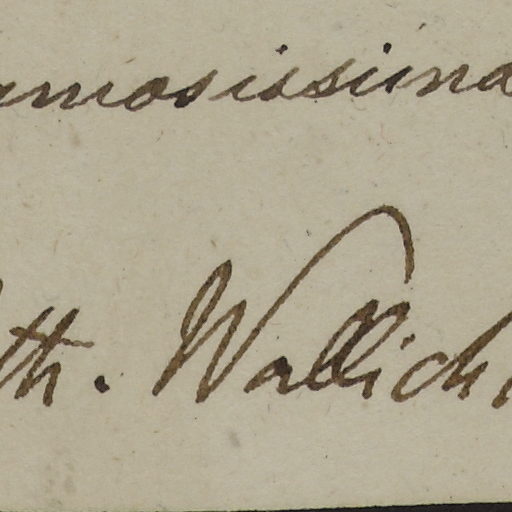 amosissima
th. Wallich